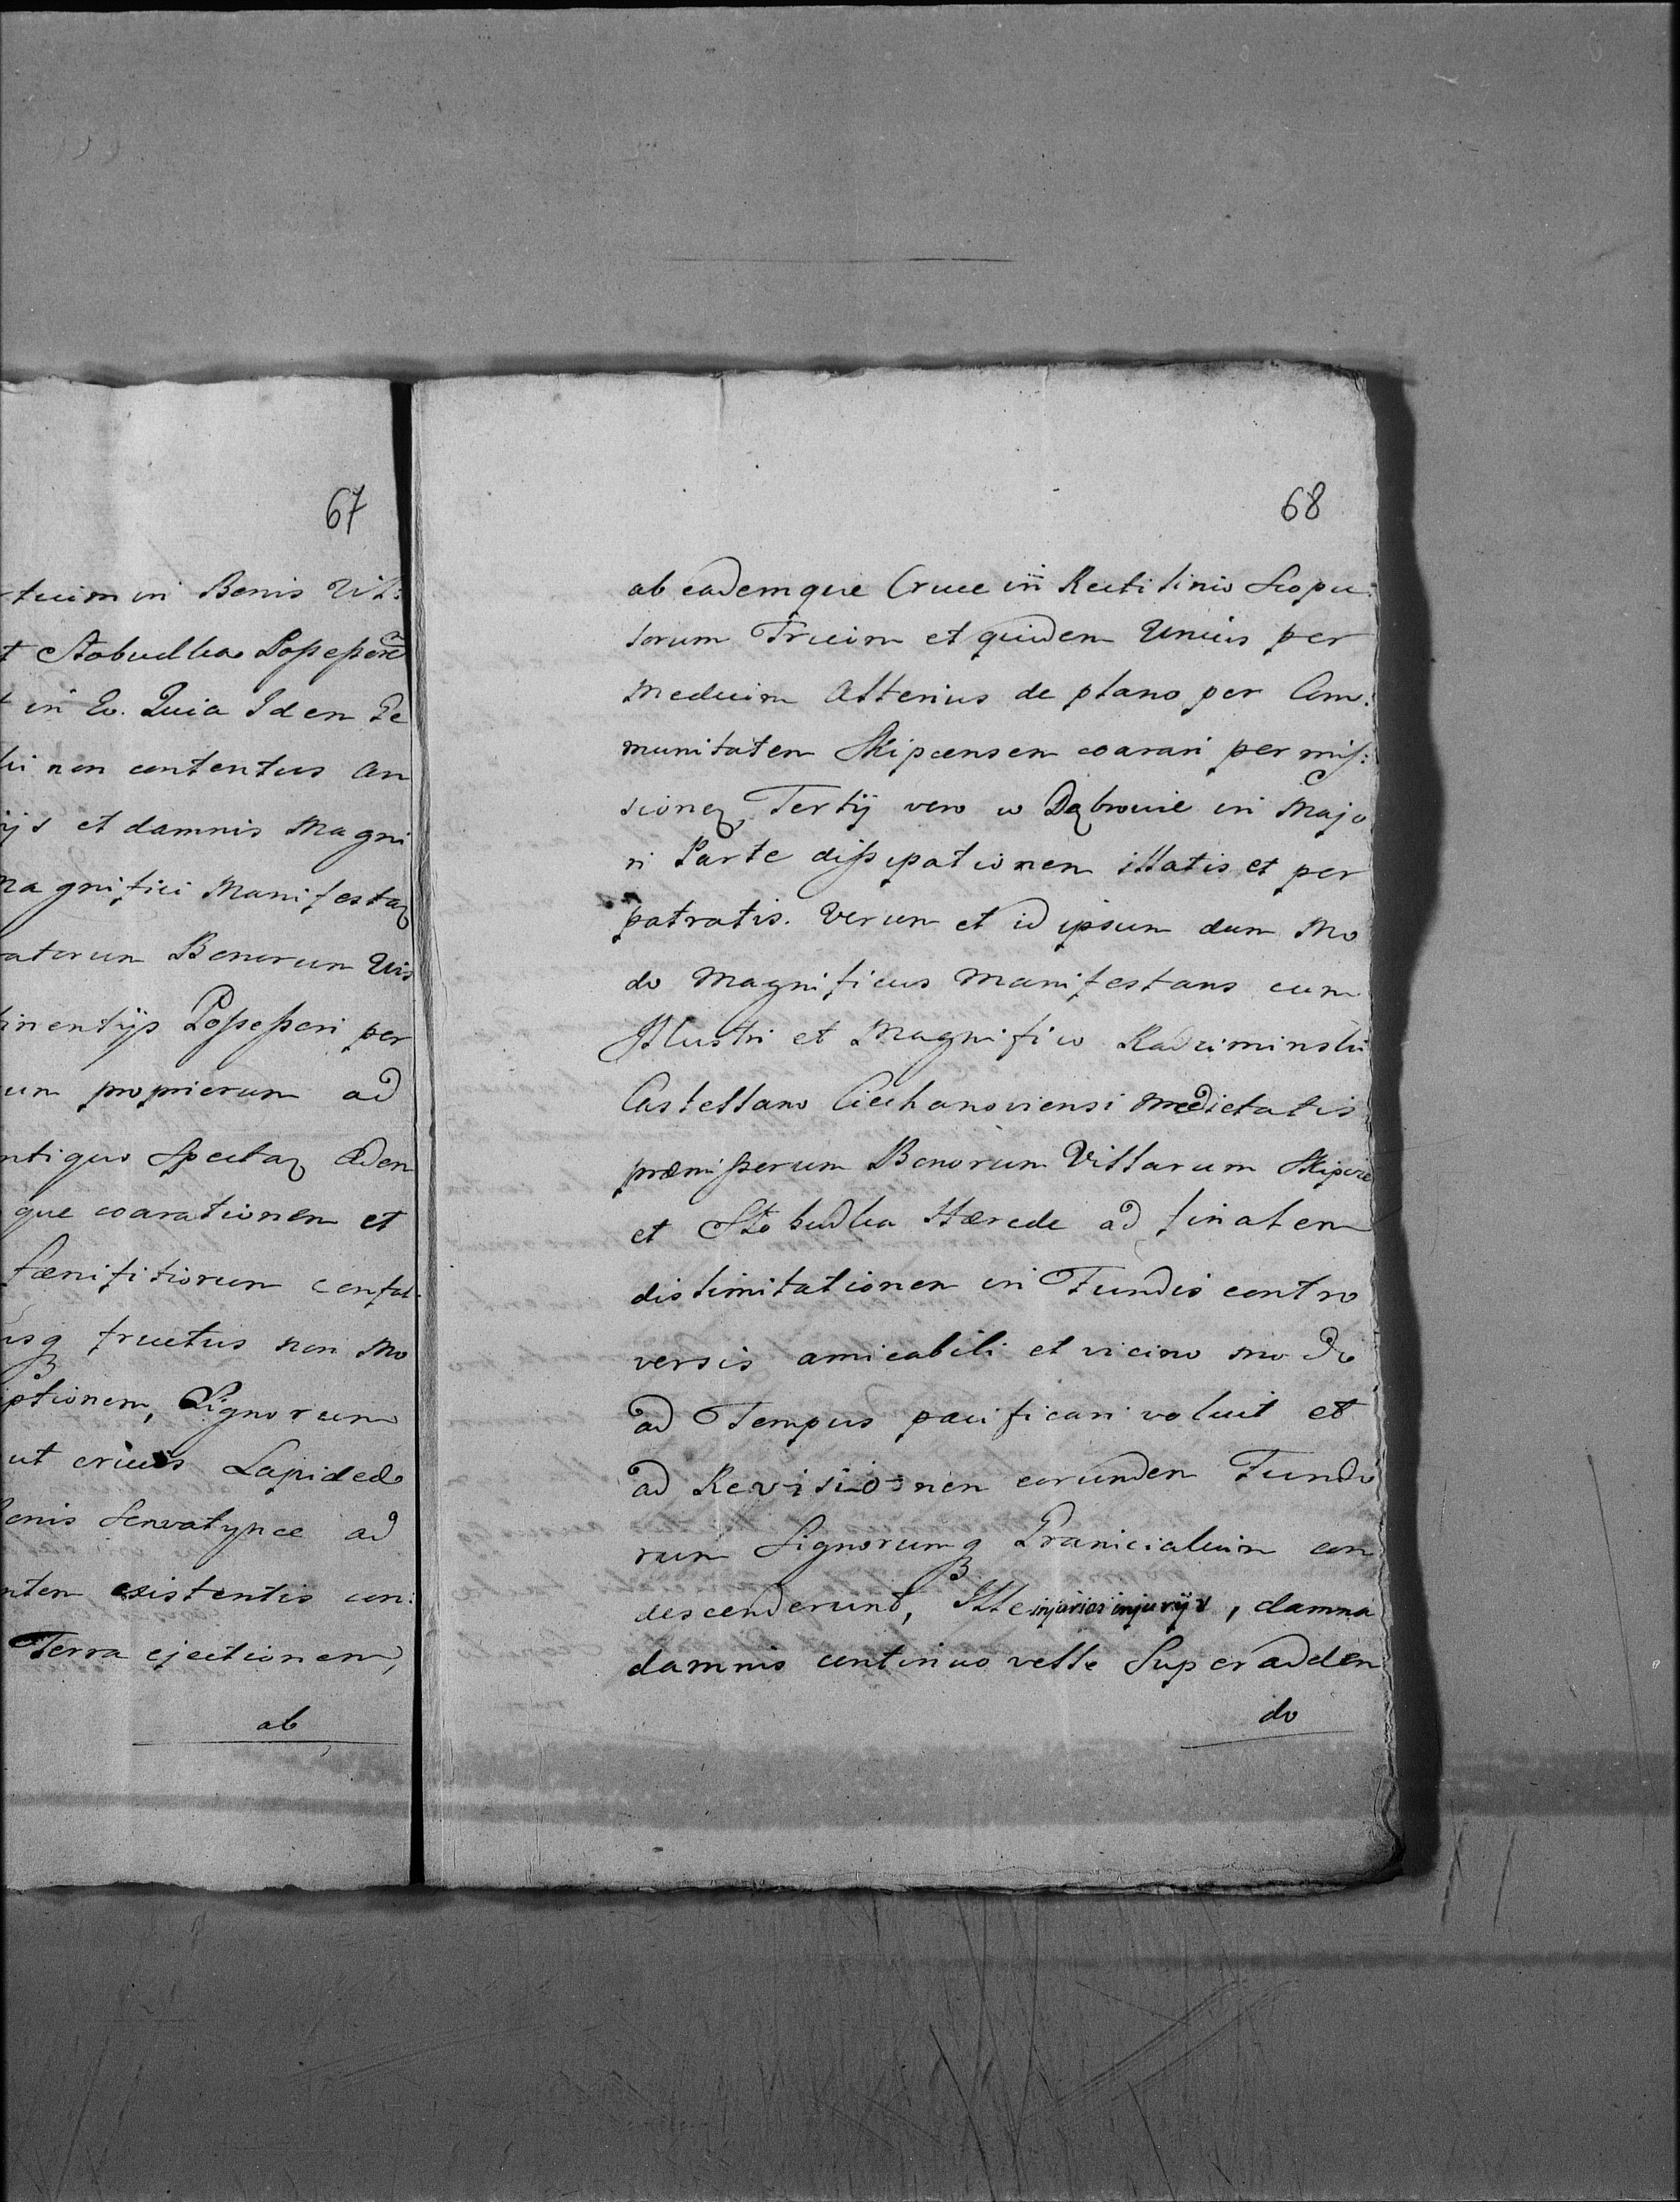 67
tuim in Benis Vil:
t Stobudka Possessore
t in Eo. Quia Idem Ge
ki non contentus an
ijs et damnis Magni
Magnifici Manifestan
atorum Bonorum Vil
tinentijs Possessori per
um propriorum ad
ntiquo Spectan Eaden
que coarationem et
fænifitiorum confal.
usq fructus non Mo
ptionem, Lignorum
ut crucis Lapideæ
ad
ntem existentis con:
Terra ejectionem,
ab
68
ab eademque Cruce in Rectilinio Scopu:
lorum Trium et quidem Unius per
Medium Alterius de plano per Com:
munitatem Skipcensem coarari permis:
sionem, Tertij vero w Dąbrowie in Majo
ri Parte dissipationem illatis et per
patratis. Verum et id ipsum dum Mo
do Magnificus Manifestans cum
Illustri et Magnifico Radziminski
Castellano Ciechanoviensi Medietatis
præmissorum Bonorum Villarum Skipcie
et Stobudka Hærede ad finalem
dislimitationem in Fundis contro
versis amicabili et vicino modo
ad Tempus pacificari voluit et
ad Revisio=nem eorundem Fundo
rum Signorumq Granicialium con
descenderunt, Ille injurias injurijs, damna
damnis continuo velle Superadden
do